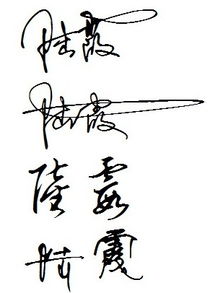 陆霞
陆霞
陸霞
陆霞